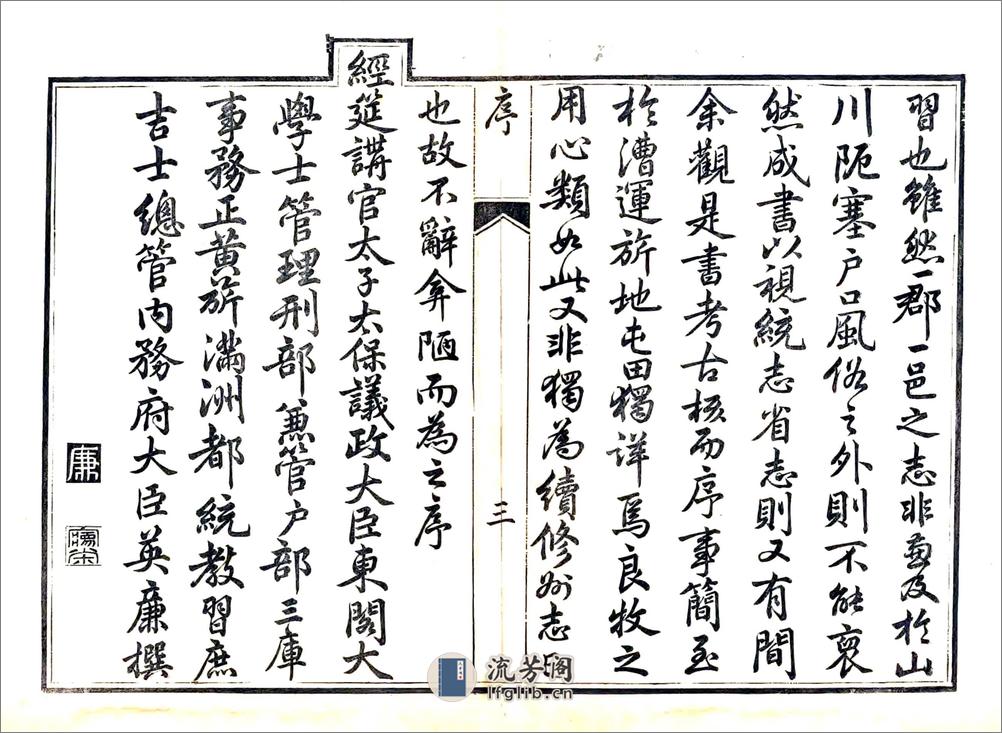 習也雖然一郡一邑之志非兼及於山
川阨塞戶口風俗之外則不能裒
然成書以視統志省志則又有間
余觀是書考古核而序事簡至
於漕運旂地屯田獨詳焉良牧之
用心類如此又非獨為續修州志
序
三
也故不辭弇陋而為之序
經筵講官太子太保議政大臣東閣大
學士管理刑部兼管户部三庫
事務正黃旂滿洲都統教習庶
吉士總管內務府大臣英廉撰
廉
流芳閣
lfglib.cn